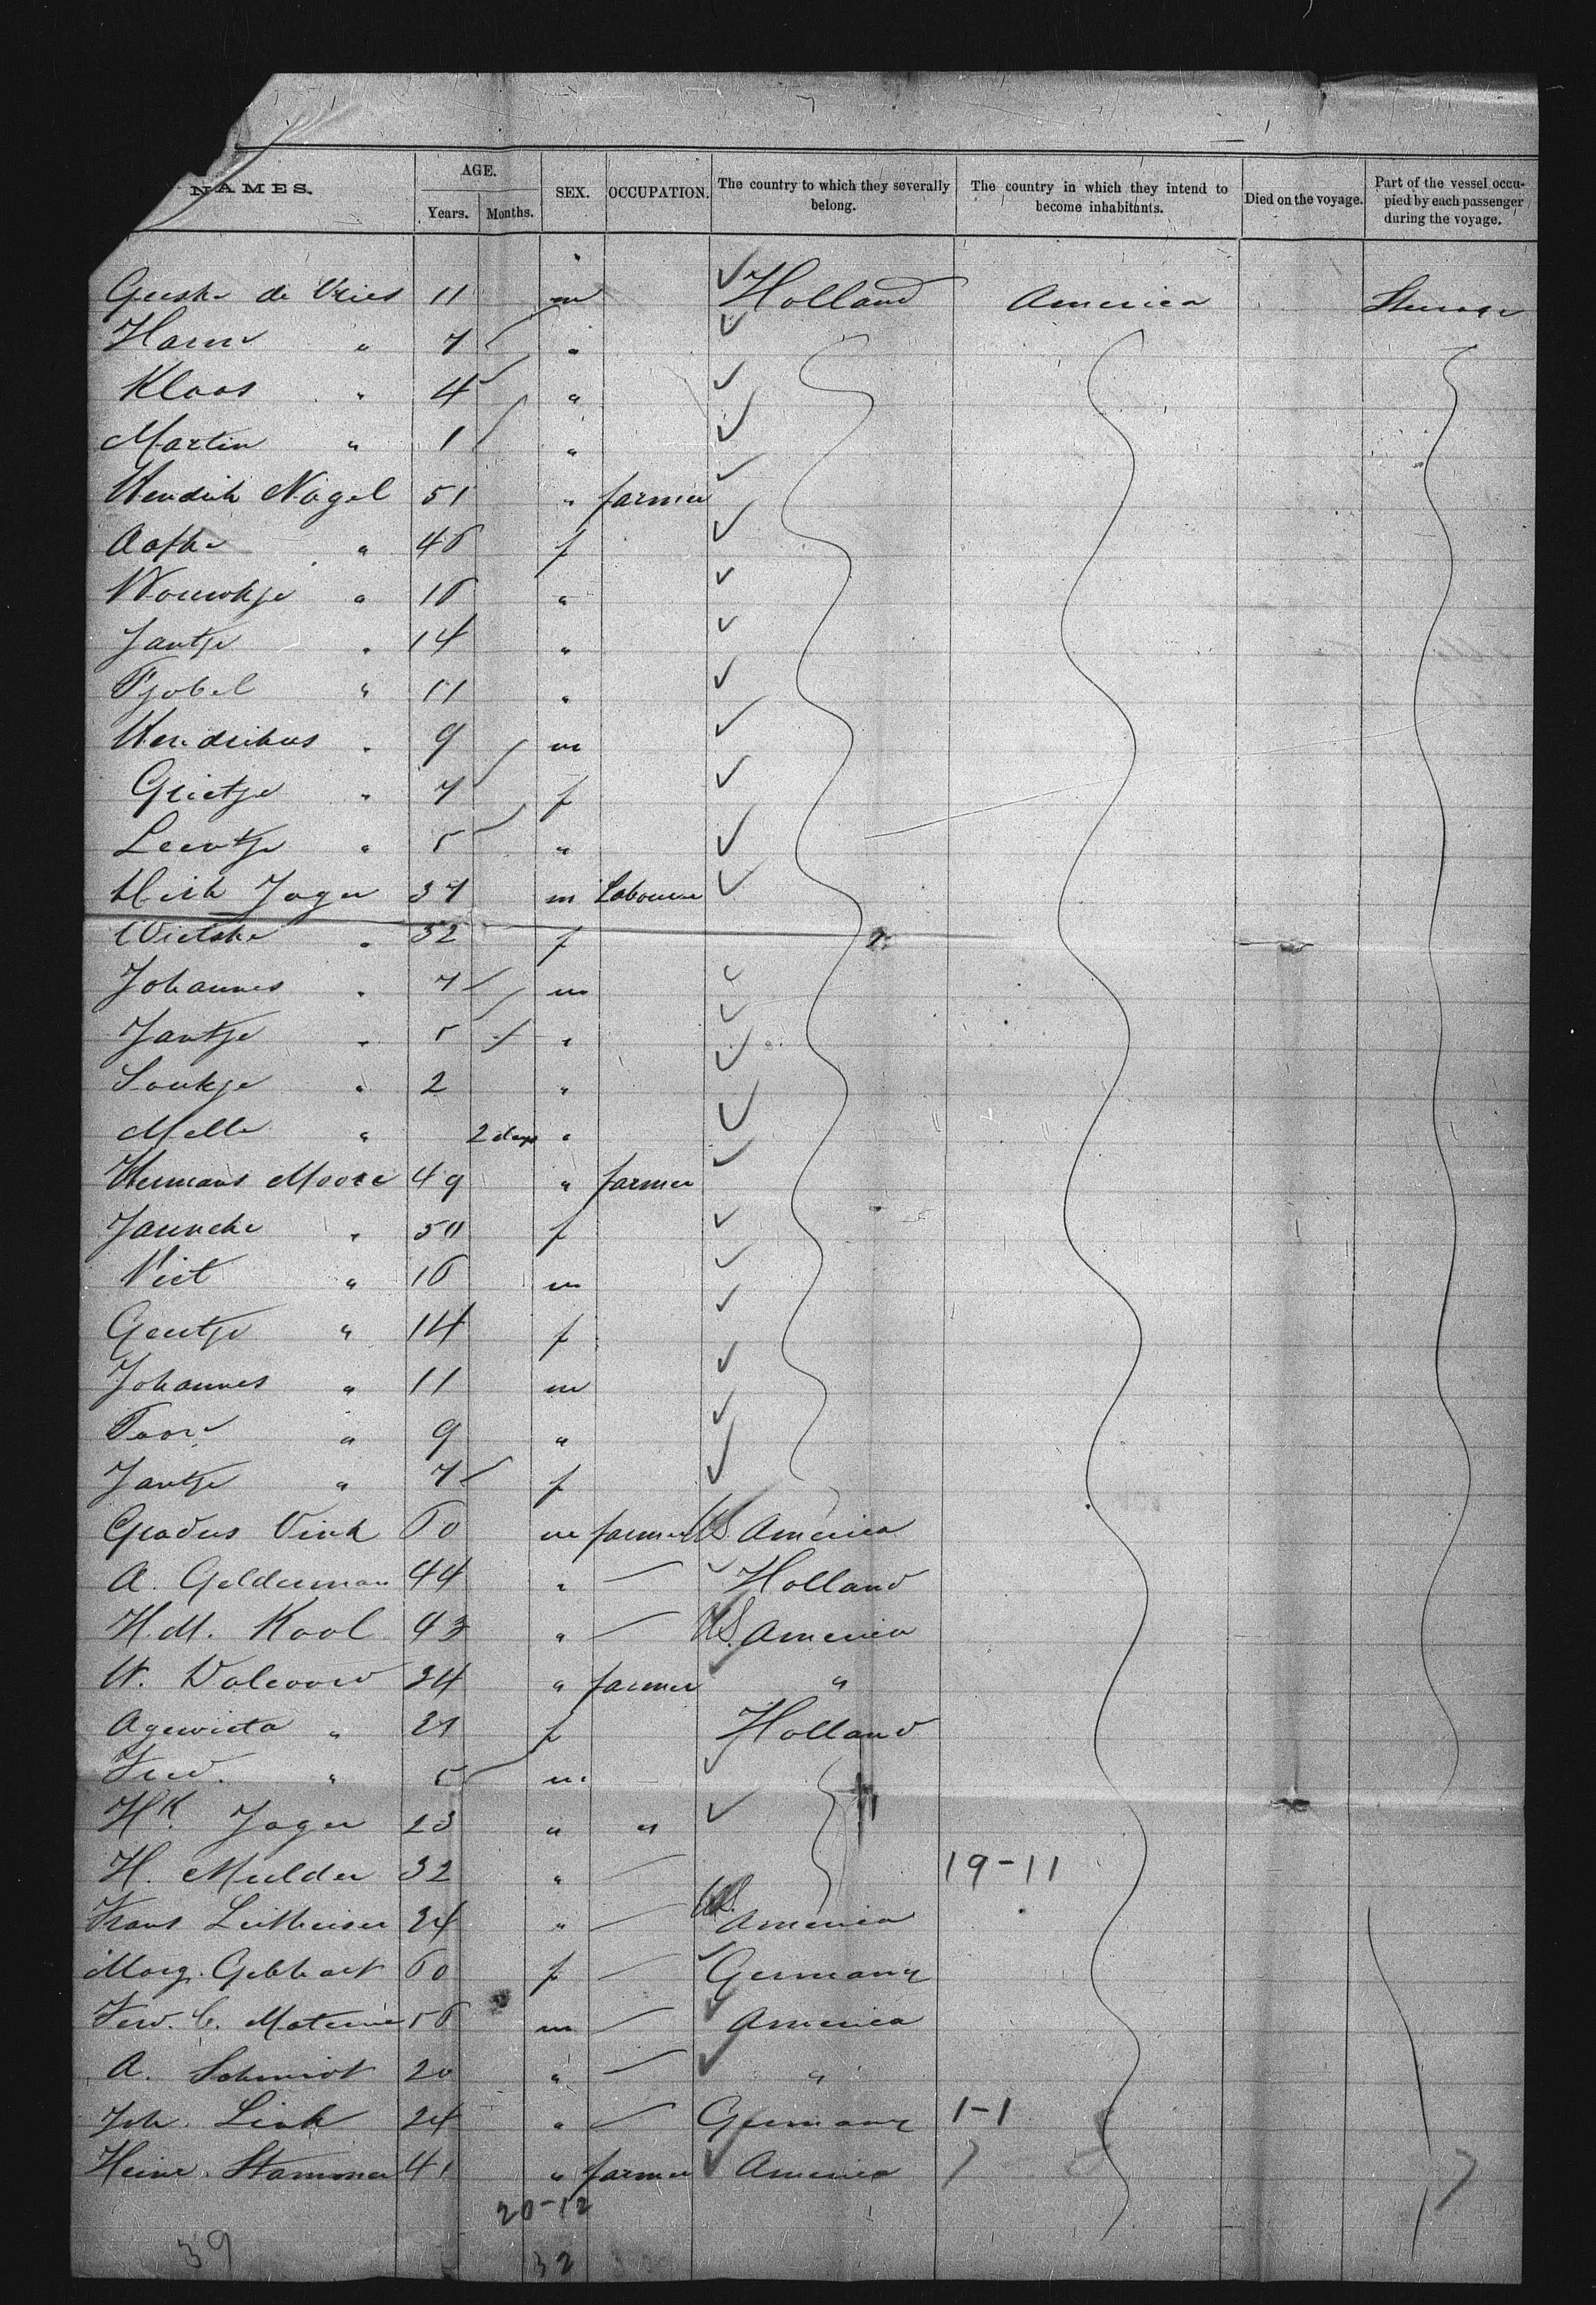 NAMES. AGE. Years. Months. SEX. OCCUPATION. The country to which they severally belong. The country in which they intend to become inhabitants. Died on the voyage. Part of the vessel occupied by each passenger during the voyage.
Geeske de Vries 11 m Holland America Steerage
Harm " 7 "
Klaas " 4 "
Martin " 1 "
Hendrik Nagel 51 " farmer
Aafke " 46 f
Wouwkje " 16 "
Jantje " 14 "
Tjobel " 11 "
Hendrikus " 9 m
Grietje " 7 f
Leentje " 5 "
Hirk Jager 37 m Labourer
Wietske " 32 f
Johannes " 7 m
Jantje " 5 "
Soukje " 2 "
Melle " 2 days "
Hermans Moore 49 " farmer
Janneke " 50 f
Piet " 16 m
Geertje " 14 f
Johannes " 11 m
" 9 "
Jantje " 7 f
Gradus Vink 60 m farmer U.S. America
A. Gelderman 44 " — Holland
H.M. Kool 43 " — U.S. America
W. " 34 " farmer "
" 31 f Holland
Ferd. " 5 m
Hk. Jager 23 " "
H. Mulder 32 " — 19-11
Frans 34 " — U.S. America
Marg. Gebhart 60 f — Germany
Ferd. C. Materne 56 m — America
A. Schmidt 20 " — "
Joh. Link 24 " — Germany 1-1
Heinr. Stammer 41 " farmer America
20-12
39 32